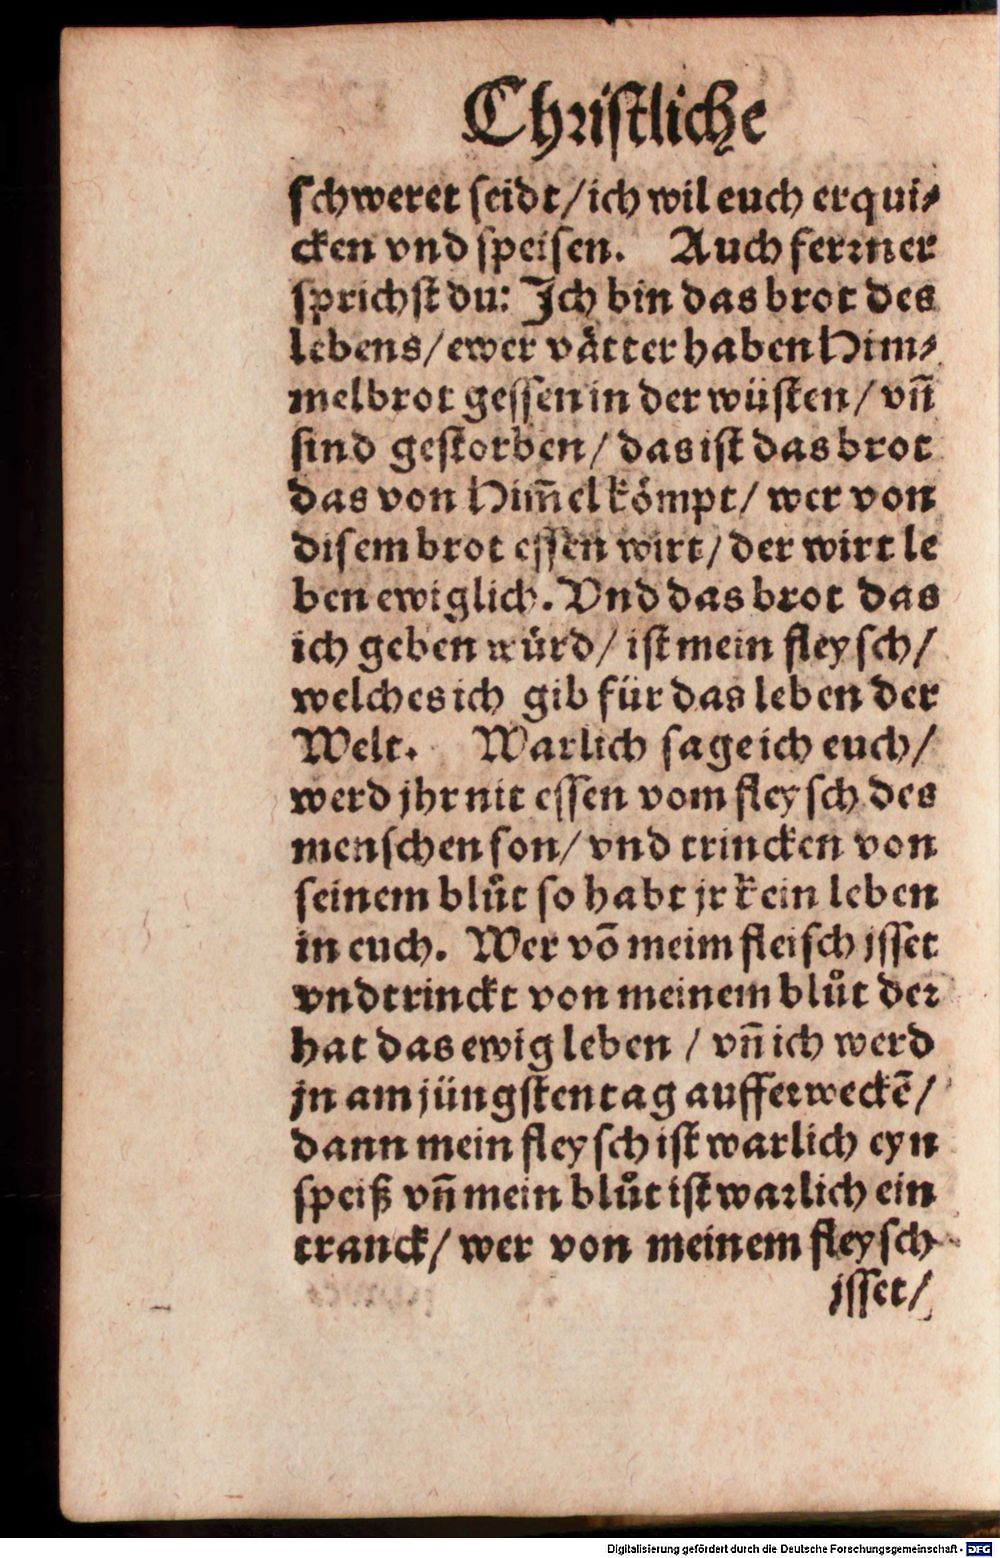 Christliche
schweret seidt/ich wil euch erqui⸗
cken vnd speisen. Auch ferrner
sprichst du: Ich bin das brot des
lebens/ewer våtter haben Him⸗
melbrot gessen in der wüsten/ vñ
sind gestorben/ das ist das brot
das von Him̃el kömpt/ wer von
disem brot essen wirt/ der wirt le
ben ewiglich. Vnd das brot das
ich geben würd/ ist mein fleysch/
welches ich gib für das leben der
Welt. Warlich sage ich euch/
werd jhr nit essen vom fleysch des
menschen son/ vnd trincken von
seinem blůt so habt jr kein leben
in euch. Wer võ meim fleisch jsset
vnd trinckt von meinem blůt der
hat das ewig leben / vñ ich werd
jn am jüngsten tag aufferweckẽ/
dann mein fleysch ist warlich eyn
speiß vñ mein blůt ist warlich ein
tranck/ wer von meinem fleysch
jsset/
Digitalisierung gefördert durch die Deutsche Forschungsgemeinschaft - DFG